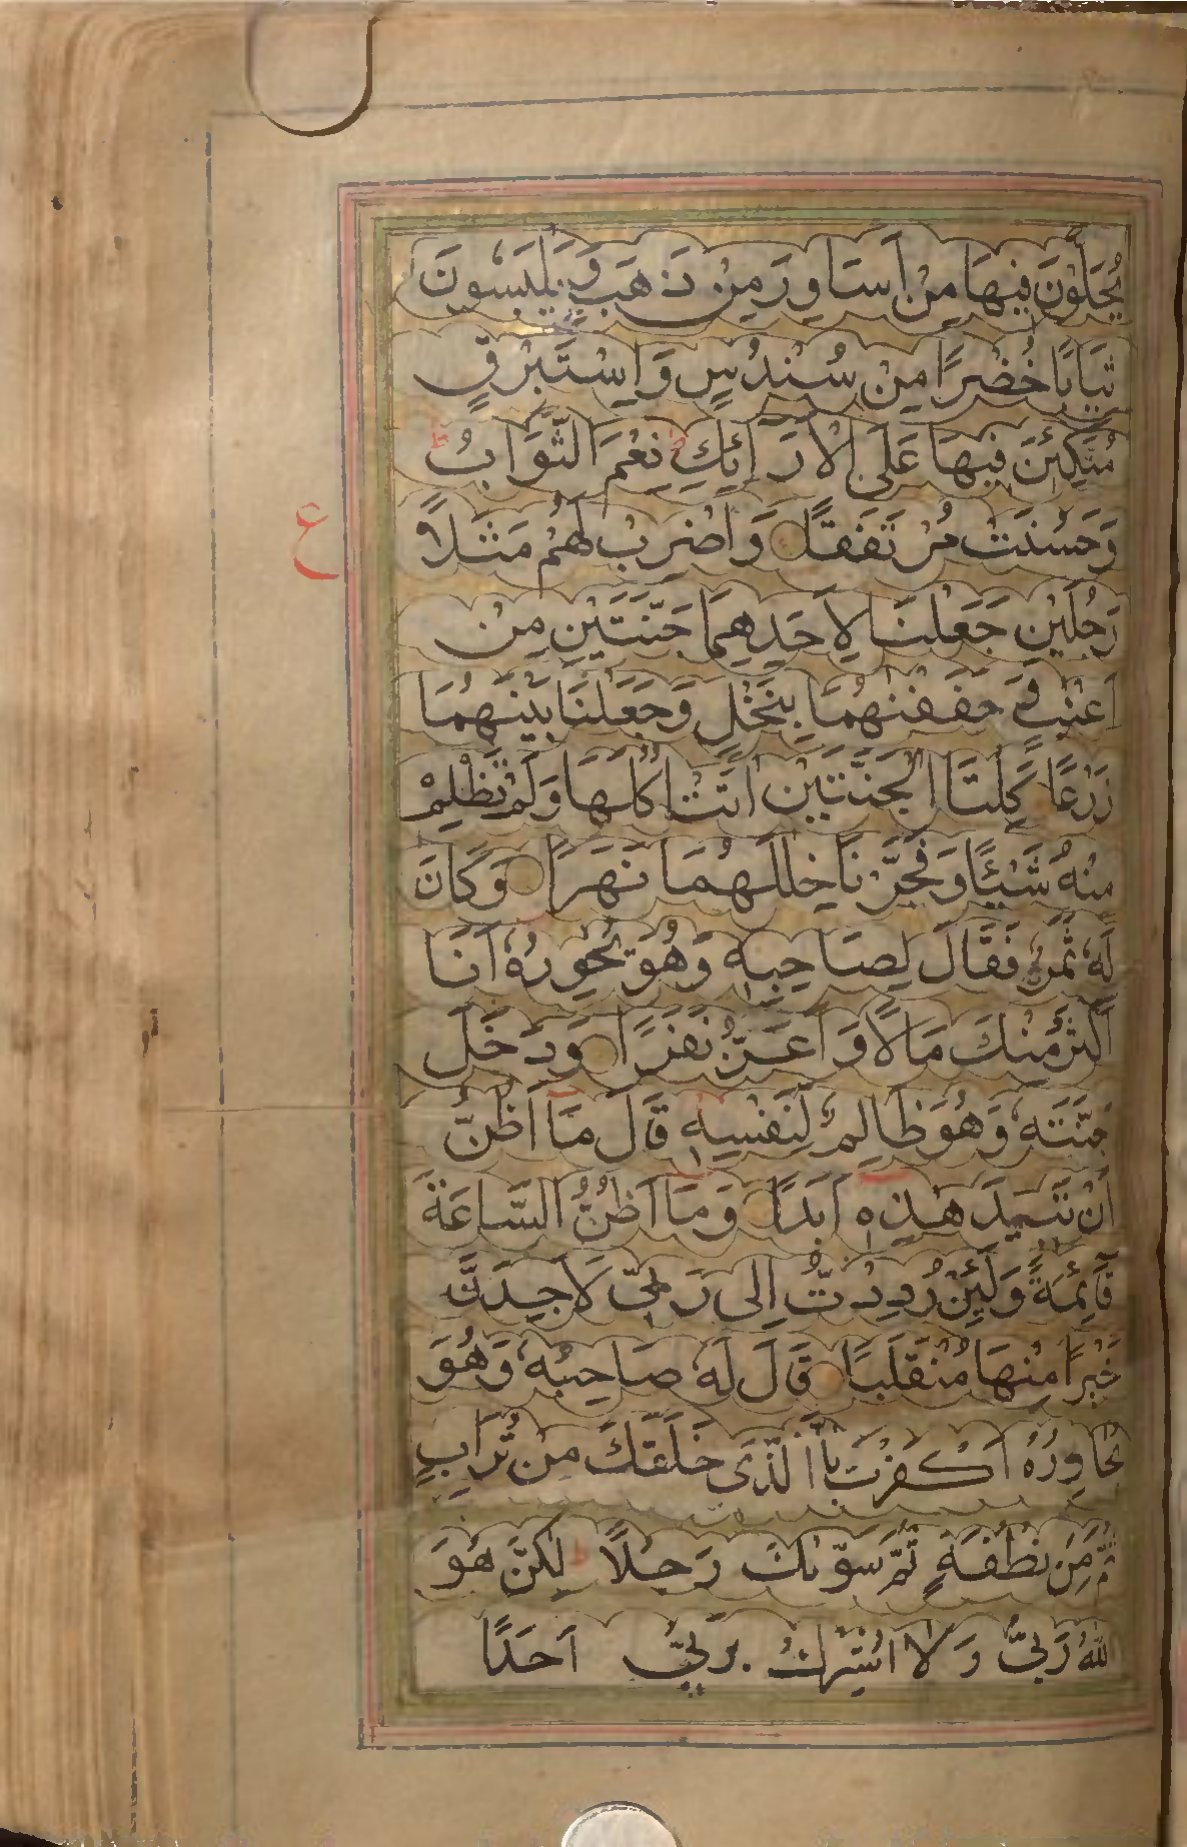 يُحَلَّوْنَ فِيهَا مِنْ اَسَاوِرَ مِنْ ذَهَبٍ وَّيَلْبَسُونَ
ثِيَابًا خُضْرًا مِنْ سُنْدُسٍ وَاِسْتَبْرَقٍ
مُتَّكِئِنَ فِيهَا عَلَى الْاَرَآئِكِ ط نِعْمَ الثَّوَابُ ط
وَحَسُنَتْ مُرْتَفَقًا وَاضْرِبْ لَهُمْ مَثَلًا
ع
رَجُلَيْنِ جَعَلْنَا لِاَحَدِهِمَا جَنَّتَيْنِ مِنْ
اَعْنٰبٍ وَّحَفَفْنٰهُمَا بِنَخْلٍ وَّجَعَلْنَا بَيْنَهُمَا
زَرْعًا كِلْتَا الْجَنَّتَيْنِ اٰتَتْ اُكُلَهَا وَلَمْ تَظْلِمْ
مِنْهُ شَيْئًا وَّفَجَّرْنَا خِلٰلَهُمَا نَهَرًا وَّكَانَ
لَهٗ ثَمَرٌ فَقَالَ لِصَاحِبِهٖ وَهُوَ يُحٰوِرُهٗ اَنَا
اَكْثَرُ مِنْكَ مَالًا وَّاَعَزُّ نَفَرًا وَدَخَلَ
جَنَّتَهٗ وَهُوَ ظَالِمٌ لِنَفْسِهٖ قَالَ مَا اَظُنُّ
اَنْ تَبِيدَ هٰذِهٖ اَبَدًا وَمَا اَظُنُّ السَّاعَةَ
قَآئِمَةً وَّلَئِنْ رُدِدْتُّ اِلٰى رَبِّى لَاَجِدَنَّ
خَيْرًا مِنْهَا مُنْقَلَبًا قَالَ لَهٗ صَاحِبُهٗ وَهُوَ
يُحَاوِرُهُ اَكَفَرْتَ بِاَالَّذِى خَلَقَكَ مِنْ تُرَابٍ
ثُمَّ مِنْ نُطْفَةٍ ثُمَّ سَوّٰىكَ رَجُلًا ط لٰكِنَّ هُوَ
اللّٰهُ رَبِّى وَلَا اُشْرِكُ بِرَبِّى اَحَدًا